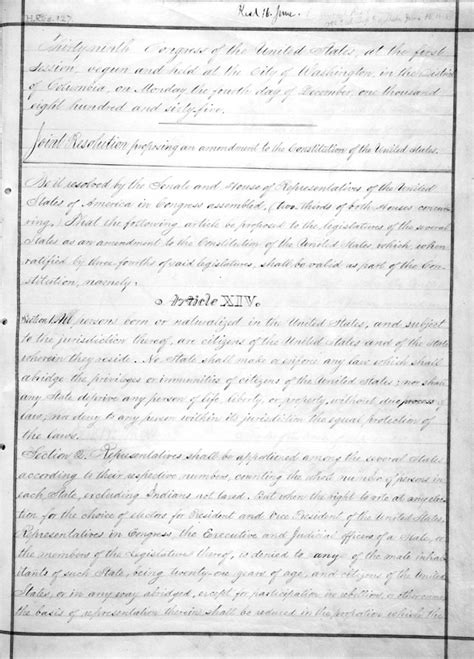 H.Res. 127.
Rec'd 16. June.
Thirty-ninth Congress of the United States, at the first
Session, begun and held at the City of Washington, in the District
of Columbia, on Monday the fourth day of December, one thousand
eight hundred and sixty-five.
Joint Resolution proposing an amendment to the Constitution of the United States.
Be it resolved by the Senate and House of Representatives of the United
States of America in Congress assembled, (two thirds of both Houses concur-
ring,) That the following article be proposed to the legislatures of the several
States as an amendment to the Constitution of the United States, which, when
ratified by three-fourths of said legislatures, shall be valid as part of the Con-
stitution, namely:
Article XIV.
Section 1. All persons born or naturalized in the United States, and subject
to the jurisdiction thereof, are citizens of the United States and of the State
wherein they reside. No State shall make or enforce any law which shall
abridge the privileges or immunities of citizens of the United States; nor shall
any State deprive any person of life, liberty, or property, without due process of
law; nor deny to any person within its jurisdiction the equal protection of
the laws.
Section 2. Representatives shall be apportioned among the several States
according to their respective numbers, counting the whole number of persons in
each State, excluding Indians not taxed. But when the right to vote at any elec-
tion for the choice of electors for President and Vice President of the United States,
Representatives in Congress, the Executive and Judicial officers of a State, or
the members of the Legislature thereof, is denied to any of the male inhab-
itants of such State, being twenty-one years of age, and citizens of the United
States, or in any way abridged, except for participation in rebellion, or other crime,
the basis of representation therein shall be reduced in the proportion which the